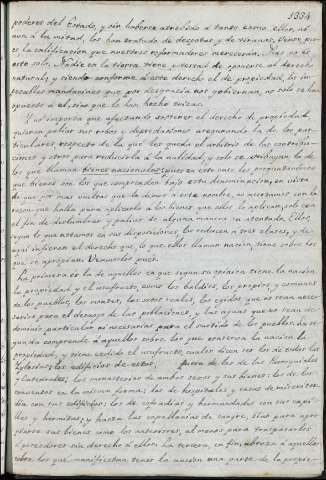 1334
poderes del Estado, y sin haberse atrevido á tanto como ellos, ni
aun á la mitad, los han tratado de despotas y de tiranos. Vease pues
la calificacion que nuestros reformadores merecerán. Mas no es
esto solo. Nadie en la tierra tiene potestad de oponerse al derecho
natural; y siendo conforme á este derecho el de propiedad, los in-
mandarines que por desgracia nos gobiernan, no solo se han
opuesto á él, sino que lo han hecho
Y no importa que afectando sostener el derecho de propiedad,
quieran paliar sus robos y depredaciones asegurando la de los par-
ticulares, respecto de la que les queda el arbitrio de las contribu-
ciones y otros para reducirla á la nulidad, y solo se atribuyan la de
los que llaman bienes nacionales; pues en este caso les preguntaremos
que bienes son los que comprenden bajo esta denominacion, en virtud
de que por mas vueltas que la dimos á este nombre, no acertamos con la
razon que haya para aplicarlo á los bienes que ellos lo aplican, solo con
el fin de deslumbrar y paliar de alguna manera su atentado. Ellos,
segun lo que notamos en sus disposiciones, los reducen á tres clases, y de
aqui infieren el derecho que, lo que ellos llaman nacion tiene sobre los
que se apropian. Veamoslo pues.
La primera es la de aquellos en que segun su opinion tiene la nacion
la propiedad y el usufructo, como los baldios, los propios, y comunes
de los pueblos, los montes, los sotos reales, los egidos que no sean nece-
sarios para el desaogo de las poblaciones, y las aguas que no sean de
dominio particular ni necesarias para el surtido de los pueblos. La se-
gunda comprende á aquellos sobre los que conserva la nacion la
propiedad, y tiene cedido el usufructo, cuales dicen ser los de todas las
Iglesias; los edificios de estas, fuera de los de las Parroquiales
y Catedrales; los monasterios de ambos sexos y sus bienes; los de los
conventos en la misma forma; los de hospitales y casas de misericor-
dia con sus edificios; los de cofradias y hermandades con sus capi-
llas y hermitas; y hasta las capellanias de sangre, sino para apro-
piarse sus bienes como los anteriores, al menos para traspasarlos
á poseedores sin derecho á ellos. La tercera, en fin, abraza á aquellos
sobre los que manifiestan tener la nacion una parte de la propie-